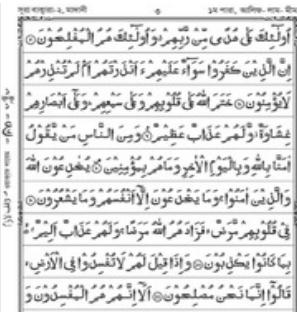 সূরা বাক্বারা-২, মাদানী ৩ ১ম পারা, আলিফ- লাম- মীম
اُولٰٓئِكَ عَلٰى هُدًى مِّنْ رَّبِّهِمْ وَاُولٰٓئِكَ هُمُ الْمُفْلِحُوْنَ
اِنَّ الَّذِيْنَ كَفَرُوْا سَوَآءٌ عَلَيْهِمْ ءَاَنْذَرْتَهُمْ اَمْ لَمْ تُنْذِرْهُمْ
لَا يُؤْمِنُوْنَ خَتَمَ اللّٰهُ عَلٰى قُلُوْبِهِمْ وَعَلٰى سَمْعِهِمْ وَعَلٰٓى اَبْصَارِهِمْ
غِشَاوَةٌ وَّلَهُمْ عَذَابٌ عَظِيْمٌ وَمِنَ النَّاسِ مَنْ يَّقُوْلُ
اٰمَنَّا بِاللّٰهِ وَبِالْيَوْمِ الْاٰخِرِ وَمَا هُمْ بِمُؤْمِنِيْنَ يُخٰدِعُوْنَ اللّٰهَ
وَالَّذِيْنَ اٰمَنُوْا وَمَا يَخْدَعُوْنَ اِلَّآ اَنْفُسَهُمْ وَمَا يَشْعُرُوْنَ
فِيْ قُلُوْبِهِمْ مَّرَضٌ فَزَادَهُمُ اللّٰهُ مَرَضًا وَلَهُمْ عَذَابٌ اَلِيْمٌ
بِمَا كَانُوْا يَكْذِبُوْنَ وَاِذَا قِيْلَ لَهُمْ لَا تُفْسِدُوْا فِي الْاَرْضِ
قَالُوْٓا اِنَّمَا نَحْنُ مُصْلِحُوْنَ اَلَآ اِنَّهُمْ هُمُ الْمُفْسِدُوْنَ وَ